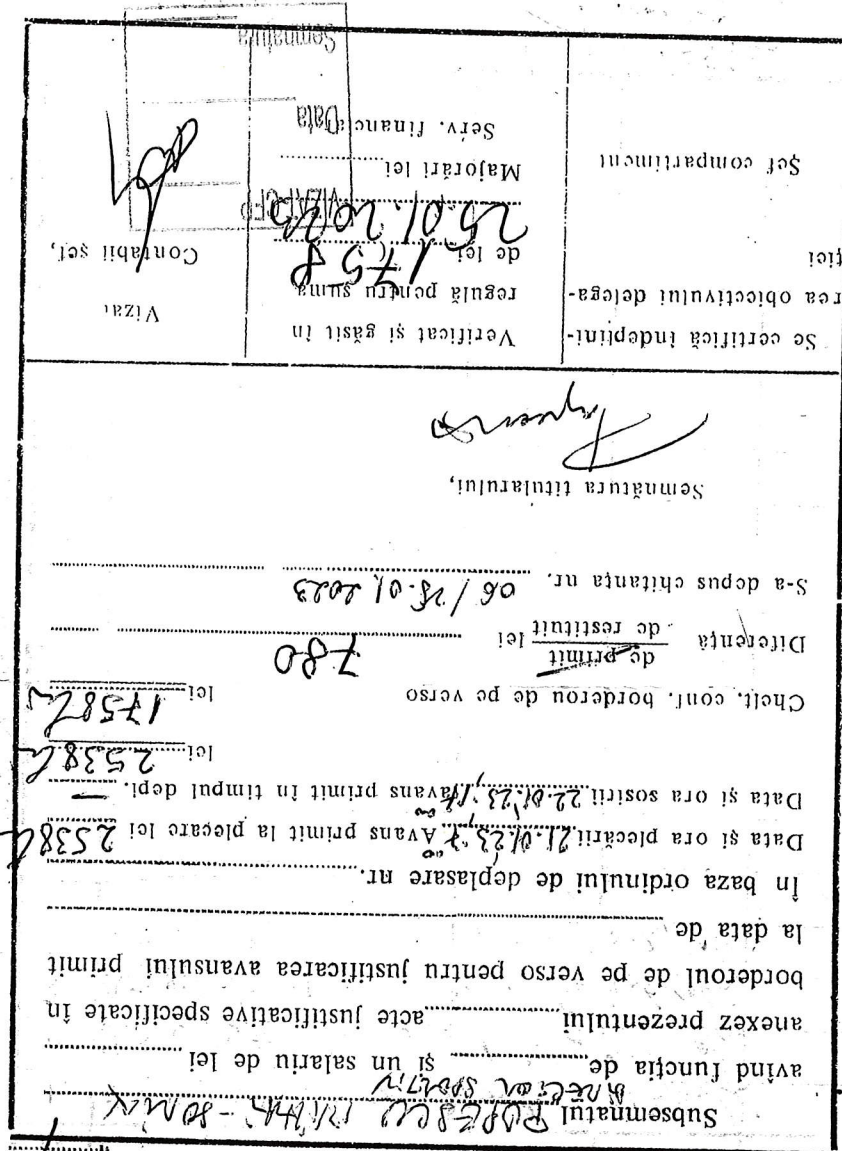 Subsemnatul POPESCU MIHAI-SORIN
avînd funcția de DIRECTOR SPORTIV și un salariu de lei
anexez prezentului acte justificative specificate în
borderoul de pe verso pentru justificarea avansului primit
la data de
În baza ordinului de deplasare nr.
Data și ora plecării 21.01.23, 7⁰⁰ Avans primit la plecare lei 2538
Data și ora sosirii 22.01.23, avans primit în timpul depl. —
lei 2538
Chelt. conf. borderou de pe verso lei 1758
Diferență de primit / de restituit lei 780
S-a depus chitanța nr. 06 / 25.01.2023
Semnătura titularului,
Se certifică îndeplini-
rea obiectivului delega-
ției
Șef compartiment
Verificat și găsit în
regulă pentru suma
de lei 1758
25.01.2023
VIZAT CFP
Majorări lei
Serv. financiar
Data
Semnatura
Vizat
Contabil șef,